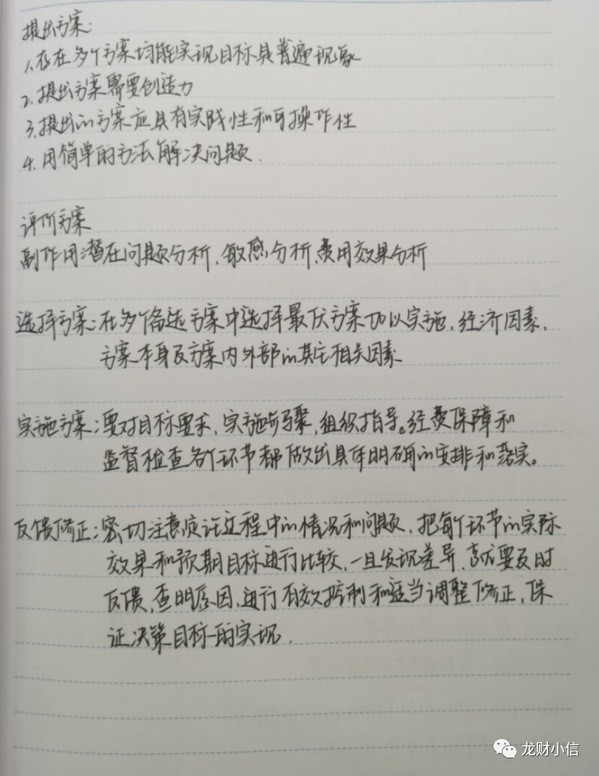 提出方案:
1.存在多个方案均能实现目标是普遍现象
2.提出方案需要创造力
3.提出的方案应具有实践性和可操作性
4.用简单的方法解决问题.
评价方案
副作用潜在问题分析、敏感分析、费用效果分析
选择方案:在多个备选方案中选择最优方案加以实施,经济因素,
方案本身及方案内外部的其它相关因素
实施方案:要对目标要求,实施步骤,组织指导。经费保障和
监督检查各个环节都做出具体明确的安排和落实。
反馈修正:密切注意过程中的情况和问题,把每个环节的实际
效果和预期目标进行比较,一旦发现差异,就要及时
反馈,查明原因,进行有效控制和适当调整修正,保
证决策目标的实现.
龙财小信